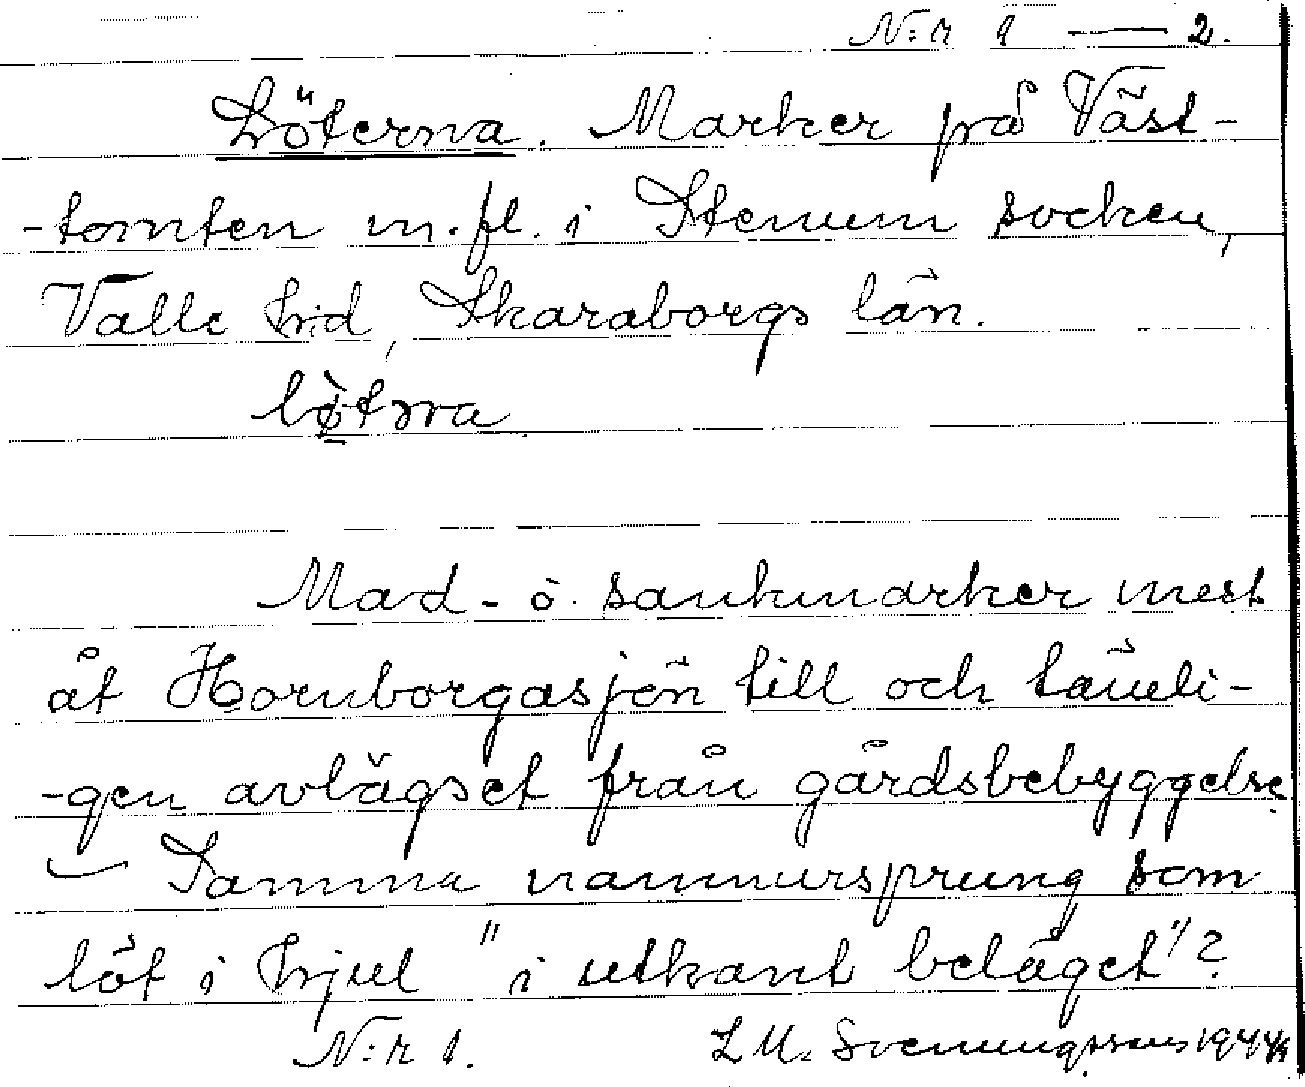 N:r 1 — 2.
Löterna. Marker på Väst-
-tomten m.fl. i Stenum socken,
Valle hrd, Skaraborgs län.
Mad- o. sankmarker mest
åt Hornborgasjön till och tämli-
-gen avlägset från gårdsbebyggelse.
— Samma namnursprung som
löt i hjul "i utkant beläget"?
N:r 1. L M. Svenungssons